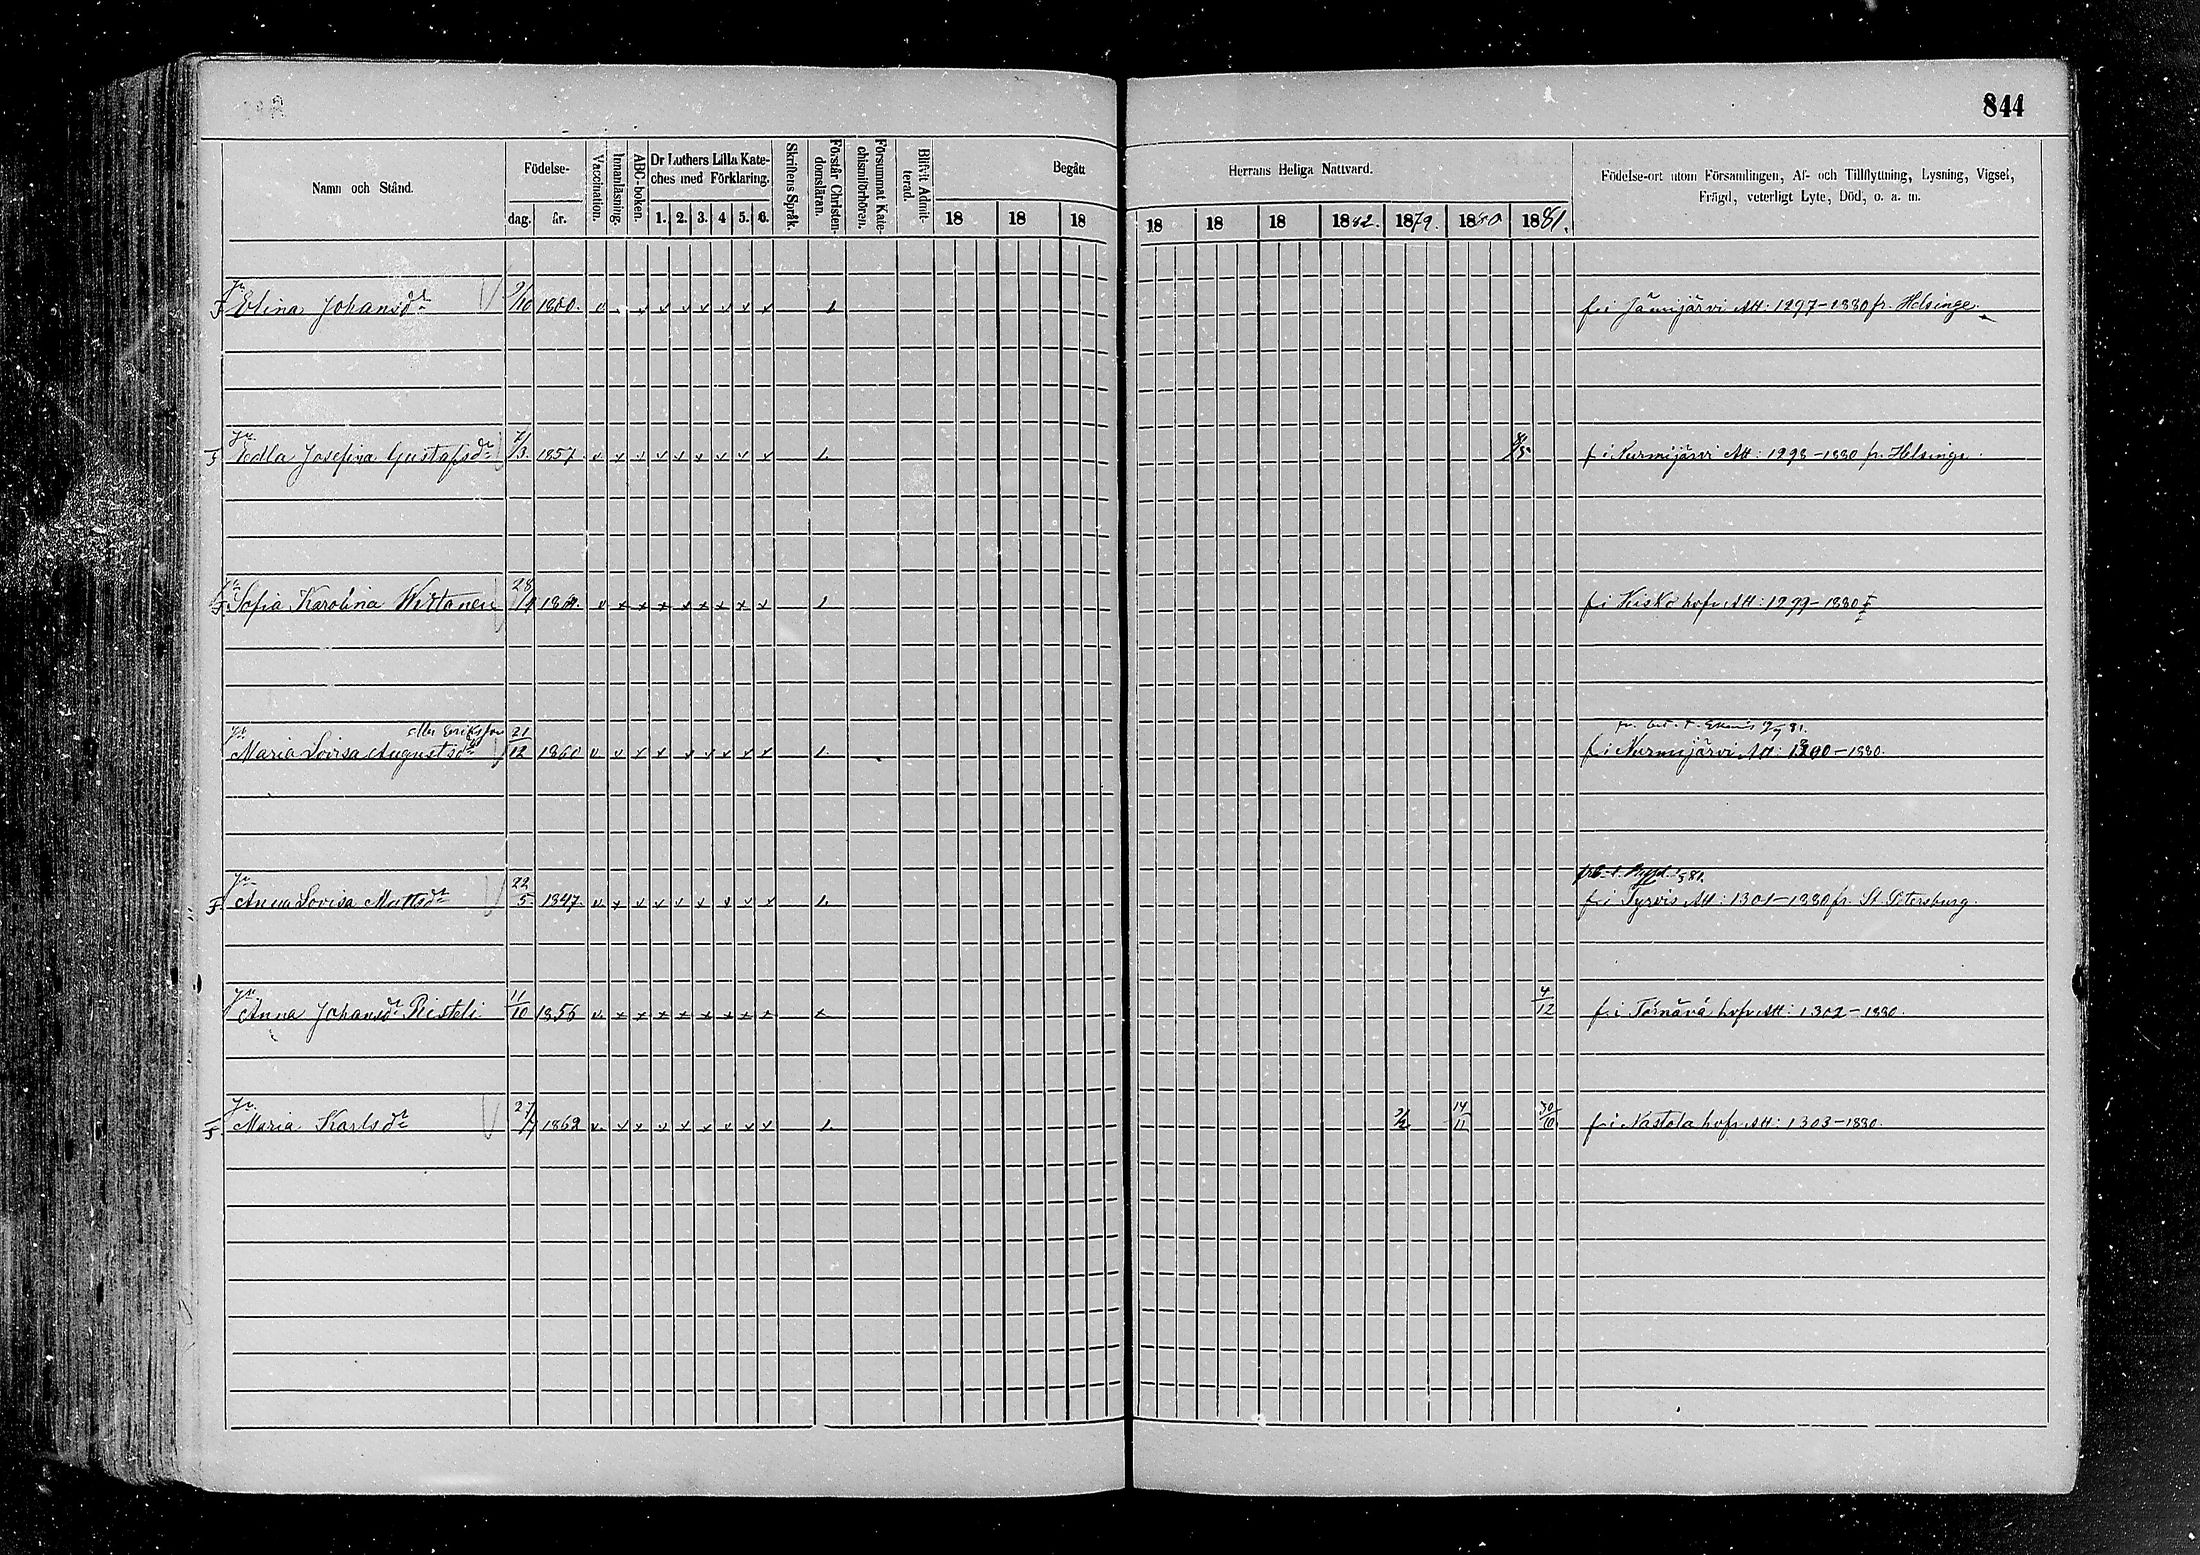 844
Namn och Stånd.
Födelse-
dag.
år.
Vaccination.
Innanläsning.
ABC-boken.
Dr Luthers Lilla Kate-
ches med Förklaring.
1. 2. 3. 4 5. 6.
Skriftens Språk.
Förstår Christen-
domsläran.
Försummat Kate-
chismiförhören.
Blifvit Admit-
terad.
Begått
Herrans Heliga Nattvard.
18 18 18 18 18 18 1882. 1879. 1880 1881.
Födelse-ort utom Församlingen, Af- och Tillflyttning, Lysning, Vigsel,
Frägd, veterligt Lyte, Död, o. a. m.
Jn
Elina Johansdr 9/10 1850. f. i Jämijärvi Att: 1297-1880 fr. Helsinge.
Jn
Edla Josefina Gustafsdr 7/3 1857 f. i Nurmijärvi Att: 1298-1880 fr. Helsinge.
Jn
Sofia Karolina Wirtanen 28/9 f. i Kisko hofr. Att: 1299-1880
Jn eller Eriksson
Maria Lovisa Augustsdr 21/12 1860 f. i Nurmijärvi Att: 1300-1880.
Jn
Anna Lovisa Mattsdr 22/5 1847. f. i Tyrvis Att: 1301-1880 fr. St Petersburg.
Jn
Anna Johansdr Risteli 11/10 1856 4/12 f. i Törnävä hofr. Att: 1302-1880.
Jn
Maria Karlsdr 27/7 1862 2/2 14/11 30/10 f. i Nastola hofr. Att: 1303-1880.